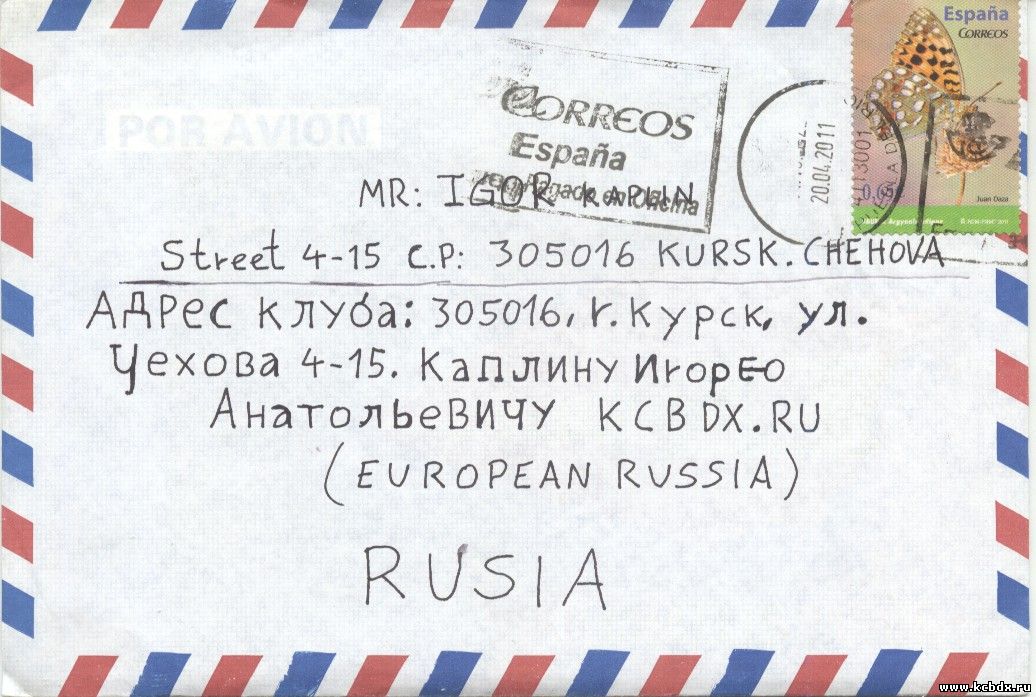 España
CORREOS
CORREOS
España
POR AVION
20.04.2011
Juan Daza
MR: IGOR KAPLIN
Street 4-15 C.P: 305016 KURSK. CHEHOVA
АДРес клуба: 305016, г. Курск, ул.
Чехова 4-15. Каплину Игорею
АнатольевиЧУ KCBDX.RU
(EUROPEAN RUSSIA)
RUSIA
www.kcbdx.ru